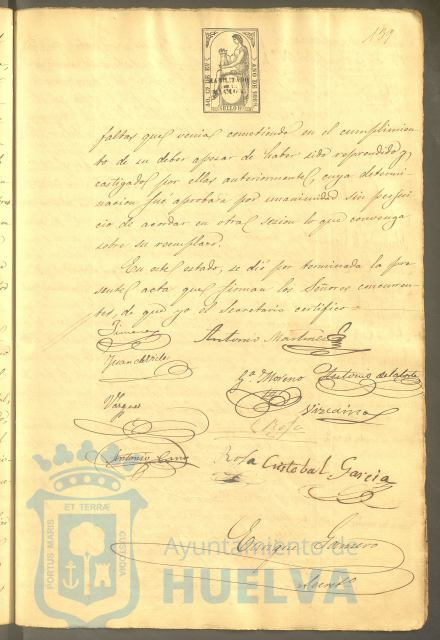 139
HABILITADO
POR LA
NACION
AÑO DE 1869
SELLO
faltas que venia cometiendo en el cumplimien-
to de su deber apesar de haber sido reprendido y
castigado por ellas anteriormente, cuya determi-
nacion fué aprobada por unanimidad sin perjui-
cio de acordar en otra sesion lo que convenga
sobre su reemplazo.
En este estado, se dió por terminada la pre-
sente acta que firman los Señores concurren-
tes, de que yo el Secretario certifico.
Jimenez
Antonio Martinez
Juan de Vides
Ga. Moreno
Antonio de la Corte
Vargas
Vizcaino
Rosa
Antonio Cano
Rosa Cristobal Garcia
PORTUS MARIS
ET TERRÆ
CUSTODIA
Ayuntamiento de
HUELVA
Secreto